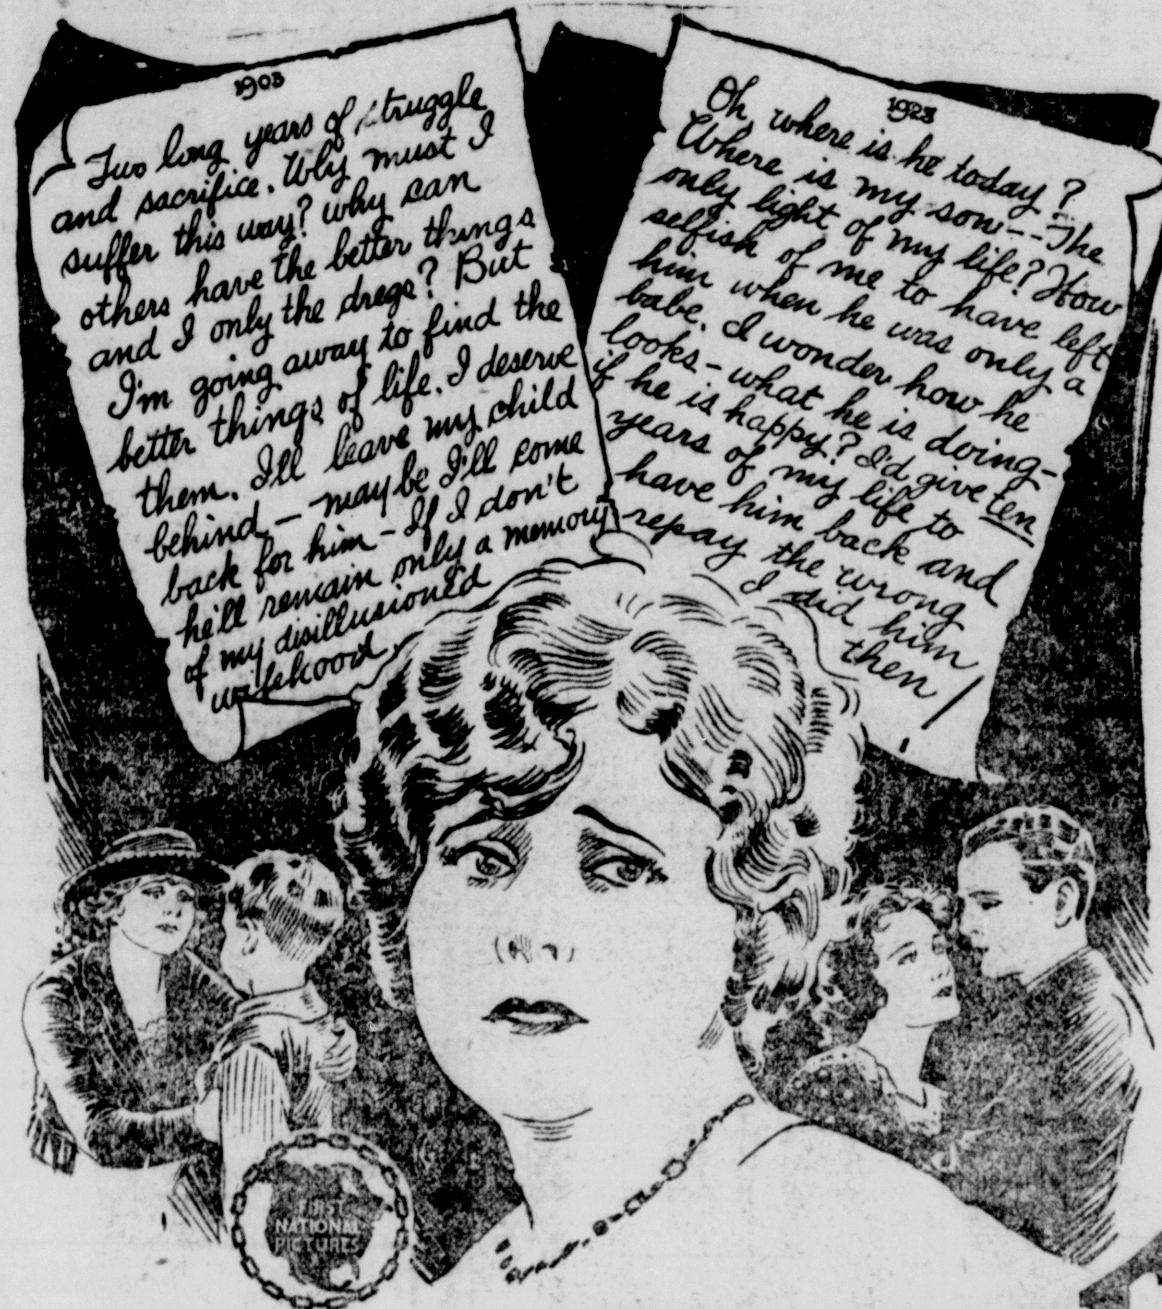 1903
Two long years of struggle
and sacrifice. Why must I
suffer this way? why can
others have the better things
and I only the dregs? But
I'm going away to find the
better things of life. I deserve
them. I'll leave my child
behind — maybe I'll come
back for him — If I don't
he'll remain only a memory
of my disillusioned
wifehood.
1923
Oh, where is he today?
Where is my son -- The
only light of my life? How
selfish of me to have left
him when he was only a
babe. I wonder how he
looks - what he is doing -
if he is happy? I'd give ten
years of my life to
have him back and
repay the wrong
I did him
then!
FIRST
NATIONAL
PICTURES